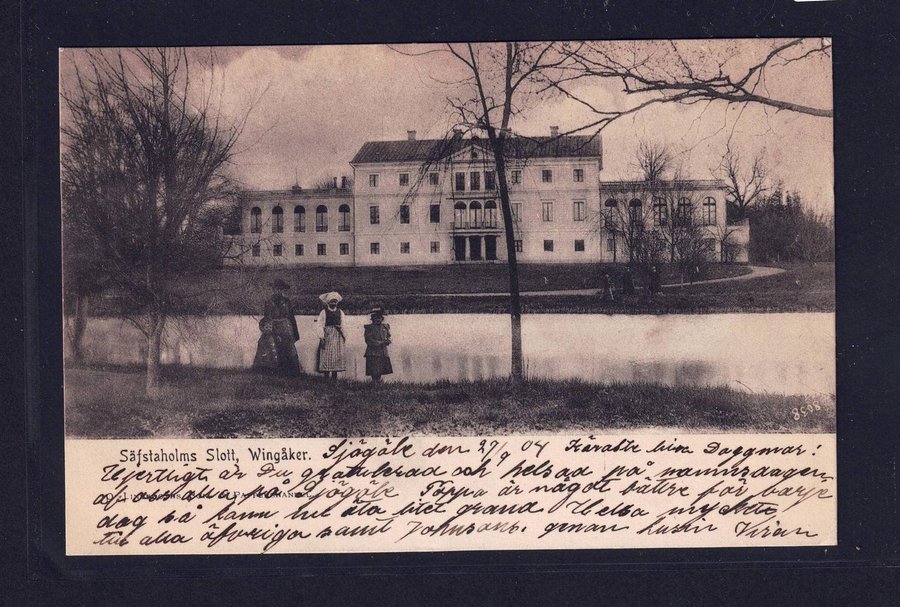 8505
Säfstaholms Slott, Wingåker. Sjögöle den 27/9 04 Käraste lilla Dagmar!
Hjertligt är Du gratulerad och helsad på namnsdagen
af oss alla på Sjögöle Pappa är något bättre för varje
dag så han kan äta litet grand Helsa mycket
till alla öfvriga samt Johnsons. genom kusin Viran